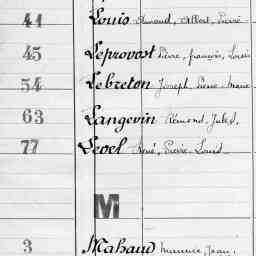 41 Louis Armand, Albert, Pierre
45 Leprovost Pierre, françois, Louis
54 Lebreton Joseph Pierre Marie
63 Langevin Rémond, Jules,
77 Level René, Pierre Louis
M
3 Mahaud Maurice, Jean,